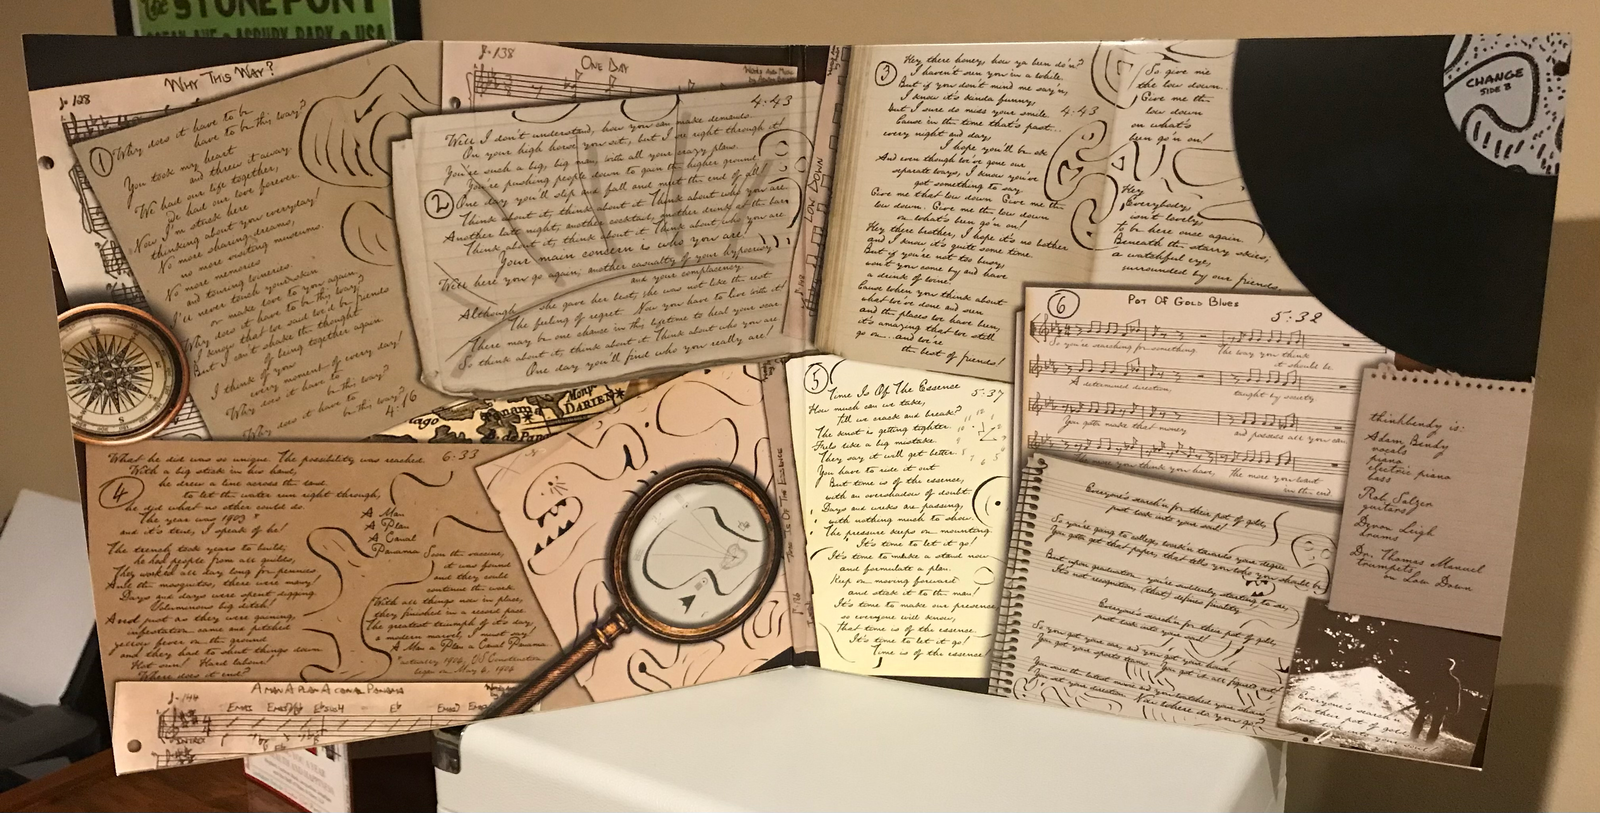 The STONE PONY
OCEAN AVE ★ ASBURY PARK ★ USA
WHY THIS WAY?
♩= 128
1
Why does it have to be
have to be this way?
You took my heart
and threw it away
We had our life together,
We had our love forever
Now I'm stuck here
thinking about you everyday!
No more sharing dreams,
no more visiting museums.
No more memories
and touring wineries.
I'll never touch your skin
or make love to you again.
Why does it have to be this way?
I know that we said we'd be friends
But I can't shake the thought
of being together again.
I think of
every moment of every day!
Why does it have to be
be this way?
Why does it have to
be this way?
4:16
♩= 138
ONE DAY
Words And Music
4:43
2
Well I don't understand, how you can make demands.
On your high horse you sit, but I see right through it!
You're such a big, big man, with all your crazy plans.
You're pushing people down to gain the higher ground
One day you'll slip and fall and meet the end of all!
Think about it, think about it Think about who you are
Another late night, another cocktail, another drink at the bar
Think about it, think about it Think about who you are.
Your main concern is who you are!
Well here you go again; another casualty of your hypocrisy
and your complacency.
Although she gave her best, she was not like the rest
The feeling of regret. Now you have to live with it!
There may be one chance in this lifetime to heal your scar.
So think about it, think about it Think about who you are
One day you'll find who you really are!
LOW DOWN
3
Hey there honey, how ya been do'n?
I haven't seen you in a while.
But if you don't mind me say'n,
I know it's kinda funny,
but I sure do miss your smile.
4:43
Cause in the time that's past...
every night and day,
I hope you'll be ok
And even though we've gone our
separate ways, I know you've
got something to say.
Give me that low down Give me the
low down. Give me the low down
on what's been go'n on!
Hey there brother, I hope it's no bother
and I know it's quite some time.
But if you're not too busy,
won't you come by and have
a drink of wine!
Cause when you think about
what we've done and seen
and the places we have been,
it's amazing that we still
go on... and we're
the best of friends!
So give me
the low down.
Give me the
low down
on what's
been go'n on!
Hey
Everybody
isn't lovely,
To be here once again
Beneath the starry skies;
a watchful eye,
surrounded by our friends.
CHANGE
SIDE B
4
What he did was so unique. The possibility was reached
6:33
With a big stick in his hand,
he drew a line across the land
to let the water run right through,
he did what no other could do.
The year was 1903
and it's true, I speak of he!
The trench took years to build;
he had people from all guilds,
They worked all day long for pennies
And the mosquitos, there were many!
Days and days were spent digging
Voluminous big ditch!
And just as they were gaining,
infestation came and pitched
yellow fever on the ground
and they had to shut things down
Hot sun! Hard labour!
Where does it end?
A Man
A Plan
A Canal
Panama
Soon the vaccine,
it was found
and they could
continue the work.
With all things now in place,
they finished in a record pace.
The greatest triumph of it's day,
a modern marvel, I must say!
A Man a Plan a Canal Panama
*actually 1904, US Construction
began on May 4, 1904
♩= 144
A MAN A PLAN A CANAL PANAMA
INTRO
Panama
DARIEN
B. de Pan
TIME IS OF THE ESSENCE
5
Time Is Of The Essence
5:37
How much can we take,
'till we crack and break?
The knot is getting tighter.
Feels like a big mistake.
They say it will get better
You have to ride it out
But time is of the essence,
with an overshadow of doubt.
Days and weeks are passing,
with nothing much to show.
The pressure keeps on mounting.
It's time to let it go!
It's time to make a stand now
and formulate a plan.
Keep on moving forward
and stick it to the man!
It's time to make our presence,
so everyone will know,
that time is of the essence.
It's time to let it go!
Time is of the essence!
6
POT OF GOLD BLUES
5:32
So you're searching for something.
The way you think
it should be
A determined direction,
taught by society
You gotta make that money
and possess all you can
The more you think you have,
The more you want
in the end
Everyone's search'n for their pot of gold,
just look into your soul!
So you're going to college, work'n towards your degree.
You gotta get that paper, that tells you who you should be
But upon graduation you're suddenly starting to see,
It's not recognition (that) defines finality
Everyone's search'n for their pot of gold,
just look into your soul!
So you got your game on, and you got your house
You got your sports team. You got it all figured out
You own the latest news and you watched your shows
You set your direction. Now where do you go?
thinkbendy is:
Adam Bendy
vocals
piano
electric piano
bass
Rob Salzer
guitars
Dyron Leigh
drums
Dr. Thomas Manuel
trumpets
on Low Down
Everyone's search'n
for their pot of gold
just look into your soul!